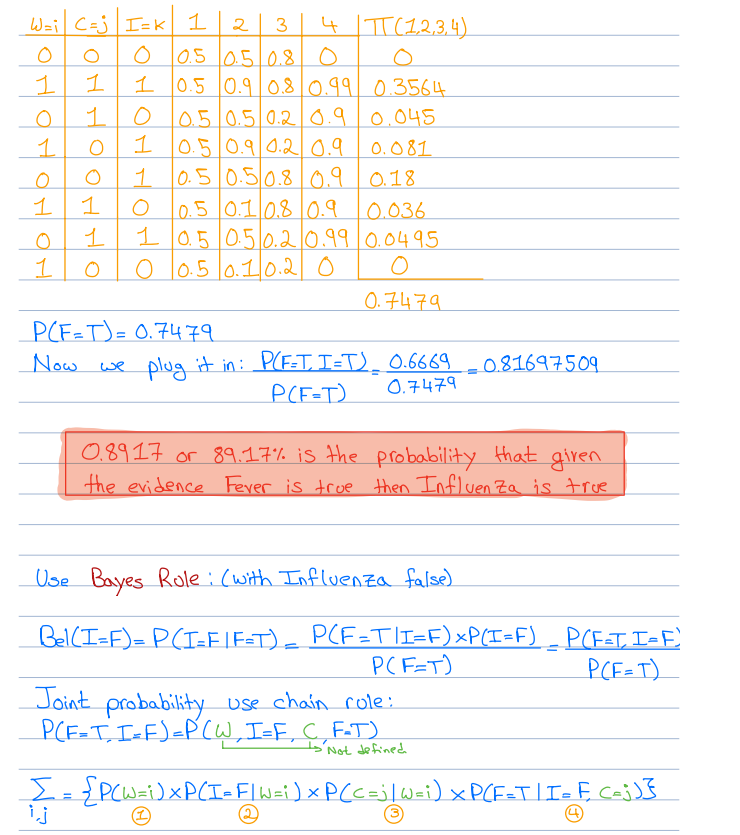 W=i C=j I=K 1 2 3 4 π(1,2,3,4)
0 0 0 0.5 0.5 0.8 0 0
1 1 1 0.5 0.9 0.8 0.99 0.3564
0 1 0 0.5 0.5 0.2 0.9 0.045
1 0 1 0.5 0.9 0.2 0.9 0.081
0 0 1 0.5 0.5 0.8 0.9 0.18
1 1 0 0.5 0.1 0.8 0.9 0.036
0 1 1 0.5 0.5 0.2 0.99 0.0495
1 0 0 0.5 0.1 0.2 0 0
0.7479
P(F=T)= 0.7479
Now we plug it in: P(F=T, I=T) / P(F=T) = 0.6669 / 0.7479 = 0.81697509
0.8917 or 89.17% is the probability that given
the evidence Fever is true then Influenza is true
Use Bayes Role: (with Influenza false)
Bel(I=F)= P(I=F|F=T) = P(F=T|I=F)×P(I=F) / P(F=T) = P(F=T, I=F) / P(F=T)
Joint probability use chain role:
P(F=T, I=F)=P(W, I=F, C, F=T)
Not defined
∑ i,j = {P(W=i)×P(I=F|W=i)×P(C=j|W=i)×P(F=T|I=F, C=j)}
① ② ③ ④